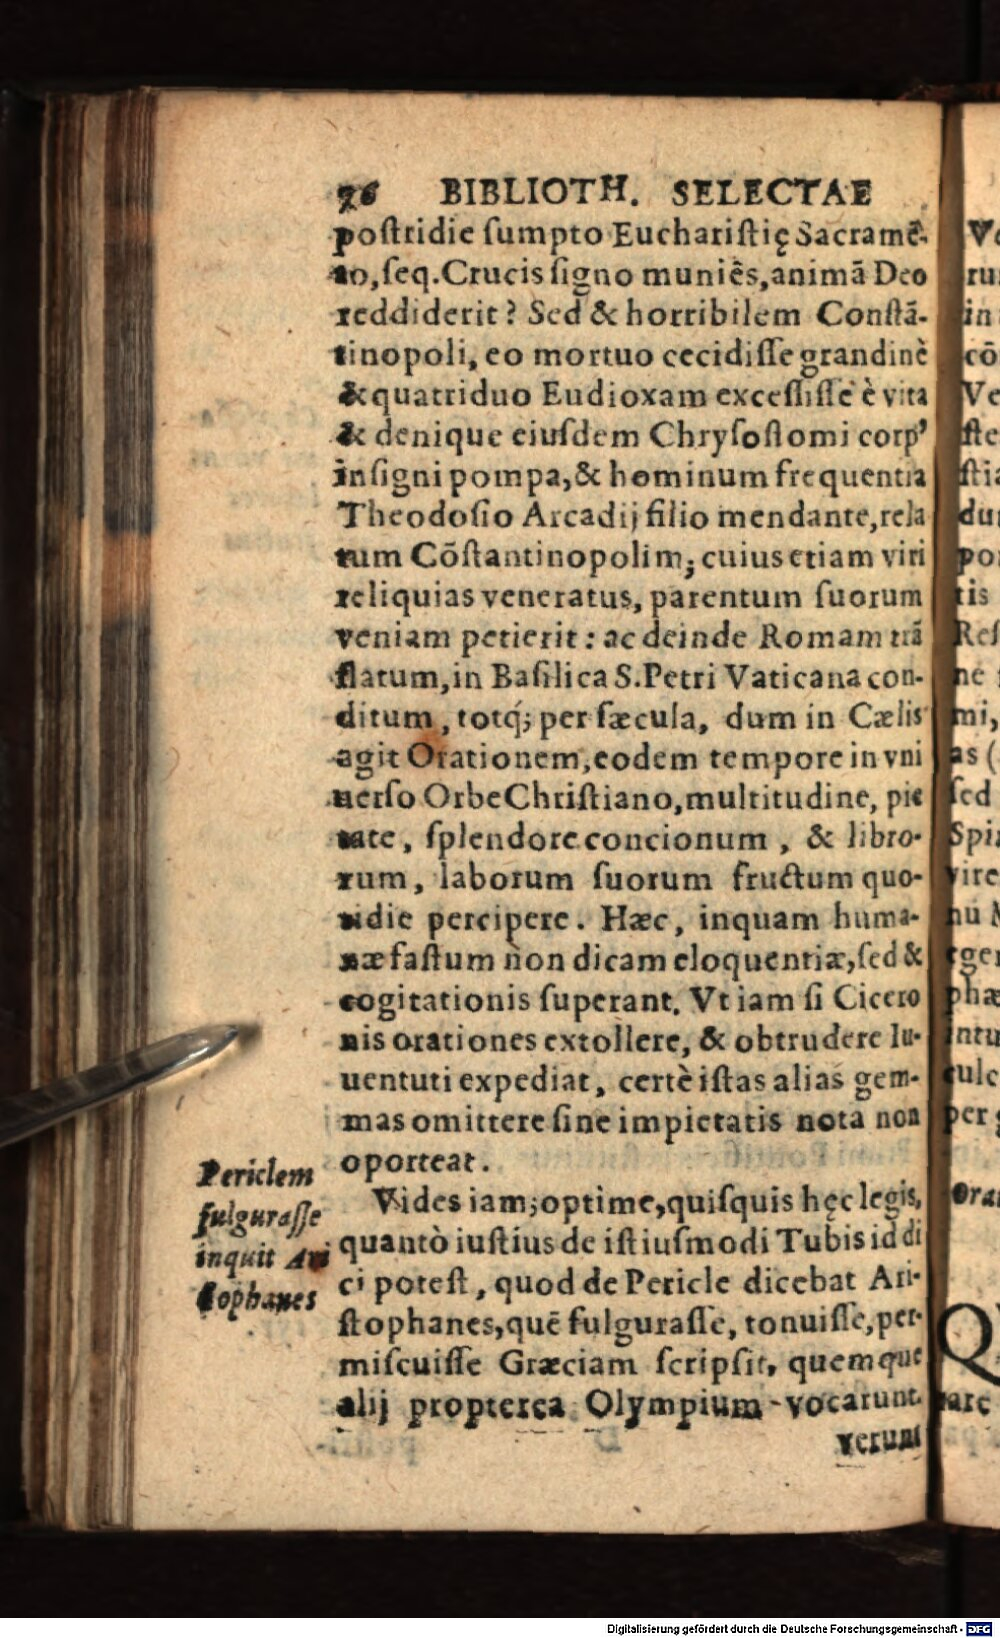 76 BIBLIOTH. SELECTAE
postridie sumpto Eucharistię Sacramē-
to, seq. Crucis signo muniēs, animā Deo
reddiderit? Sed & horribilem Constā-
tinopoli, eo mortuo cecidisse grandinē
& quatriduo Eudioxam excessisse è vita
& denique eiusdem Chrysostomi corp'
insigni pompa, & hominum frequentia
Theodosio Arcadij filio mendante, rela
tum Cōstantinopolim; cuius etiam viri
reliquias veneratus, parentum suorum
veniam petierit: ac deinde Romam trā
slatum, in Basilica S. Petri Vaticana con-
ditum, totq; per sæcula, dum in Cælis
agit Orationem, eodem tempore in vni
uerso Orbe Christiano, multitudine, pie
tate, splendore concionum, & libro-
rum, laborum suorum fructum quo-
tidie percipere. Hæc, inquam huma-
næ fastum non dicam eloquentiæ, sed &
cogitationis superant. Vt iam si Cicero
nis orationes extollere, & obtrudere Iu-
uentuti expediat, certè istas alias gem-
mas omittere sine impietatis nota non
oporteat.
Vides iam; optime, quisquis hęc legis,
quantò iustius de istiusmodi Tubis id di
ci potest, quod de Pericle dicebat Ari-
stophanes, quē fulgurasse, tonuisse, per-
miscuisse Græciam scripsit, quemque
alij propterea Olympium vocarunt.
verum
Periclem
fulgurasse
inquit Ari
stophanes
Ve
ru
in
cō
Ve
ste
stia
dur
po
tis
Res
ne
mi,
as (
sed
Spi
vire
nu
ege
phæ
intu
culc
per
Ora
Q
tare
Digitalisierung gefördert durch die Deutsche Forschungsgemeinschaft - DFG